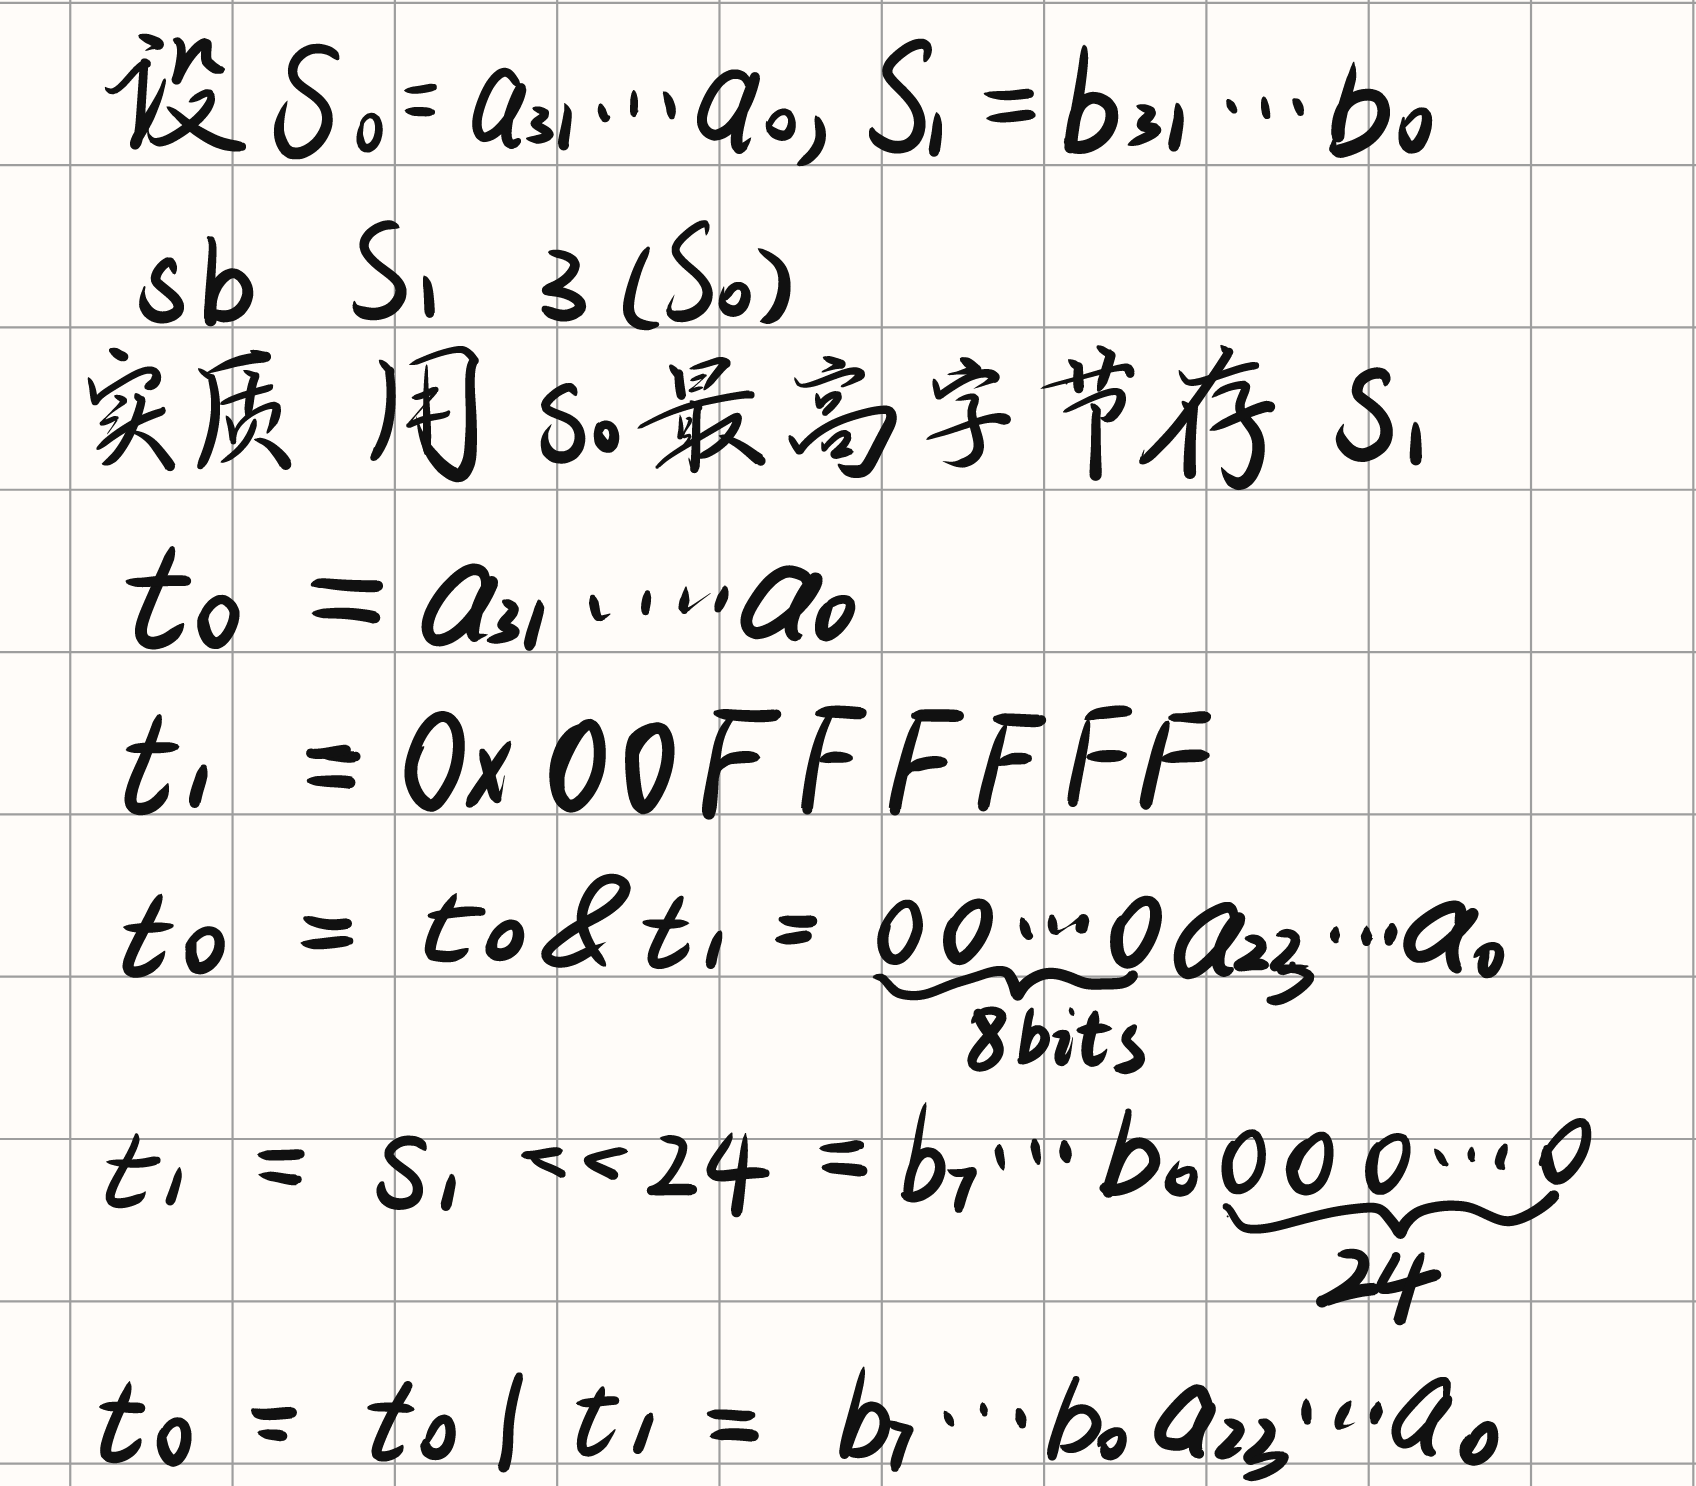 设 S₀ = a₃₁...a₀, S₁ = b₃₁...b₀
sb S₁ 3(S₀)
实质 用 S₀最高字节存 S₁
t₀ = a₃₁....a₀
t₁ = 0x00FFFFFF
t₀ = t₀&t₁ = 00...0a₂₃...a₀
8bits
t₁ = S₁ <<24 = b₇...b₀000...0
24
t₀ = t₀|t₁ = b₇...b₀a₂₃...a₀